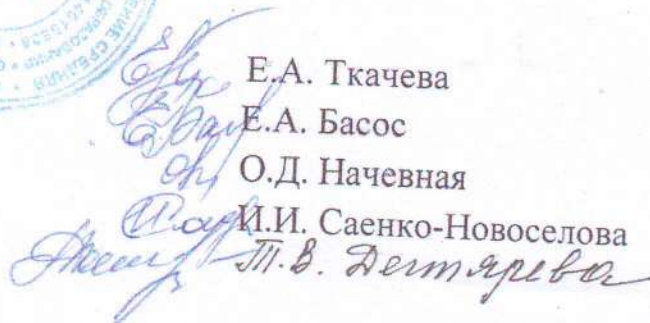 Е.А. Ткачева
Е.А. Басос
О.Д. Начевная
И.И. Саенко-Новоселова
Т.В. Дегтярева